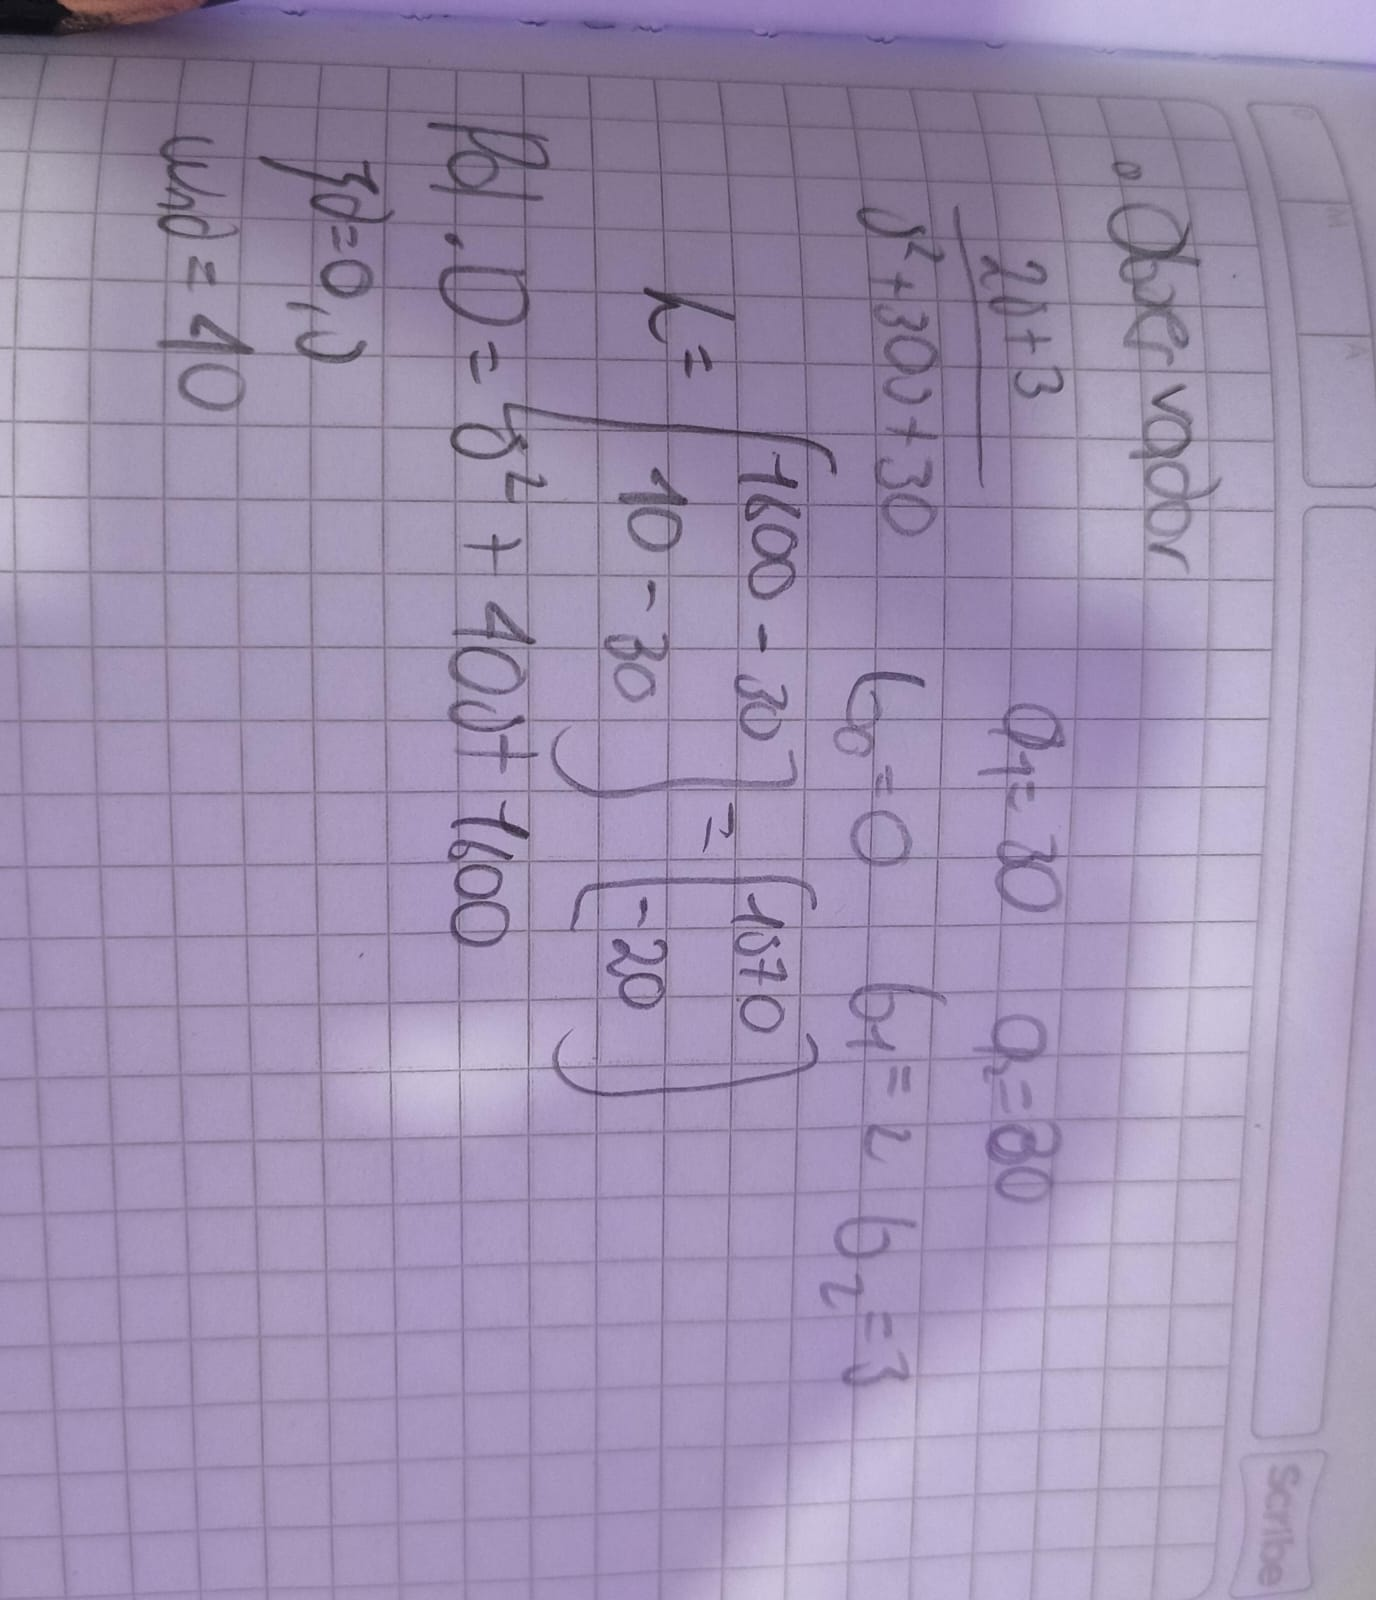 Observador
2s+3
s²+30s+30
a₁=30 a₂=30
b₀=0 b₁=2 b₂=3
h= [1600-30
10-30] = [1570
-20]
Pol. D = s² + 40s + 1600
ζd=0,5
wnd = 40
Scribe